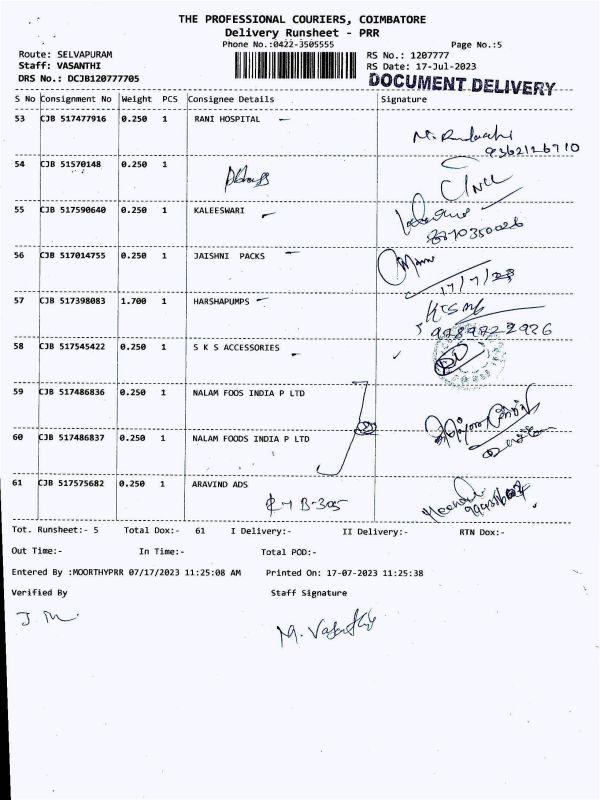 THE PROFESSIONAL COURIERS, COIMBATORE
Delivery Runsheet - PRR
Phone No.:0422-3505555 Page No.:5
Route: SELVAPURAM RS No.: 1207777
Staff: VASANTHI RS Date: 17-Jul-2023
DRS No.: DCJB120777705 DOCUMENT DELIVERY
S No Consignment No Weight PCS Consignee Details Signature
53 CJB 517477916 0.250 1 RANI HOSPITAL
9362126710
54 CJB 51570148 0.250 1
55 CJB 517590640 0.250 1 KALEESWARI
56 CJB 517014755 0.250 1 JAISHNI PACKS
17/7/23
57 CJB 517398083 1.700 1 HARSHAPUMPS
9789722926
58 CJB 517545422 0.250 1 S K S ACCESSORIES
59 CJB 517486836 0.250 1 NALAM FOOS INDIA P LTD
60 CJB 517486837 0.250 1 NALAM FOODS INDIA P LTD
61 CJB 517575682 0.250 1 ARAVIND ADS
B-305
Tot. Runsheet:- 5 Total Dox:- 61 I Delivery:- II Delivery:- RTN Dox:-
Out Time:- In Time:- Total POD:-
Entered By :MOORTHYPRR 07/17/2023 11:25:08 AM Printed On: 17-07-2023 11:25:38
Verified By Staff Signature
M. Vasanthi